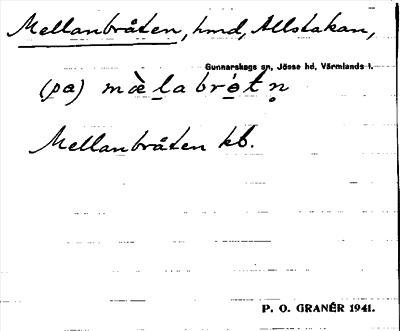 Mellanbråten, hmd, Allstakan,
Gunnarskogs sn, Jösse hd, Värmlands l.
(pa) mæ̀l̲abrót̲n̥
Mellanbråten kb.
P. O. GRANÉR 1941.